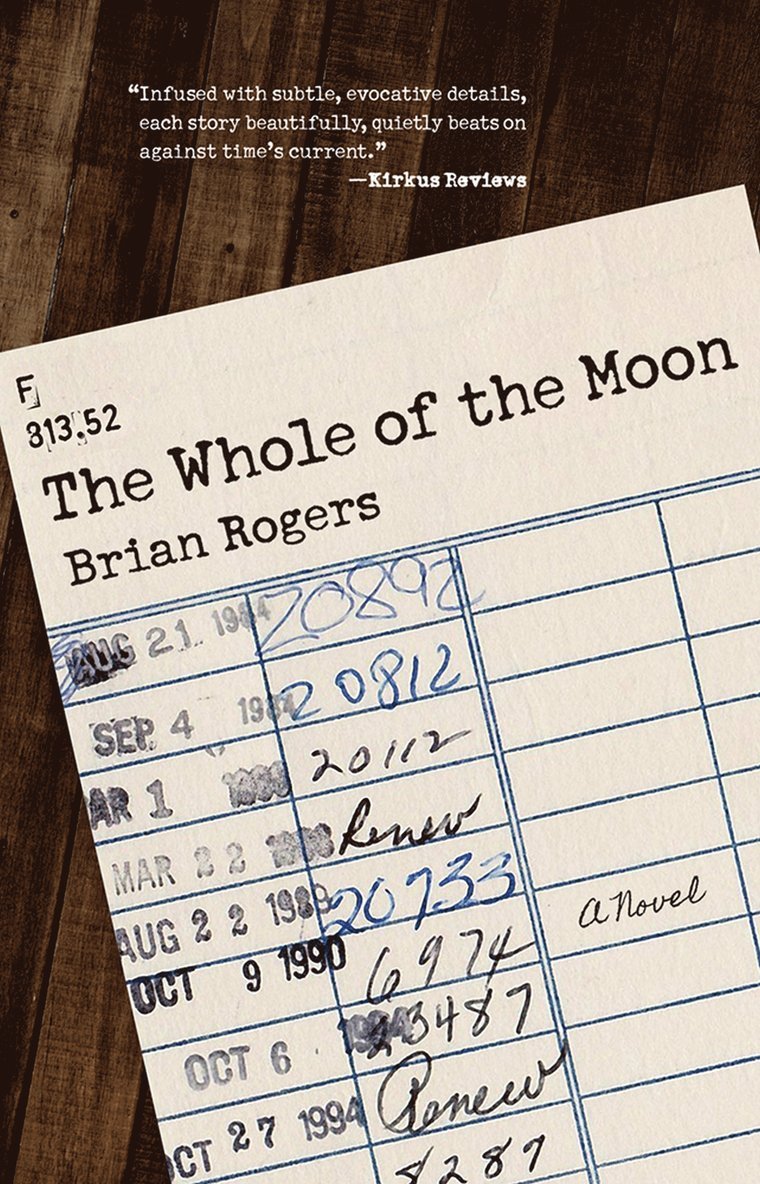 “Infused with subtle, evocative details,
each story beautifully, quietly beats on
against time’s current.”
—Kirkus Reviews
F
813.52
The Whole of the Moon
Brian Rogers
AUG 21 1984 20892
SEP 4 1984 20812
AR 1 20112
MAR 22 Renew
AUG 22 1989 20733
a Novel
OCT 9 1990 6974
OCT 6 1994 23487
OCT 27 1994 Renew
8287